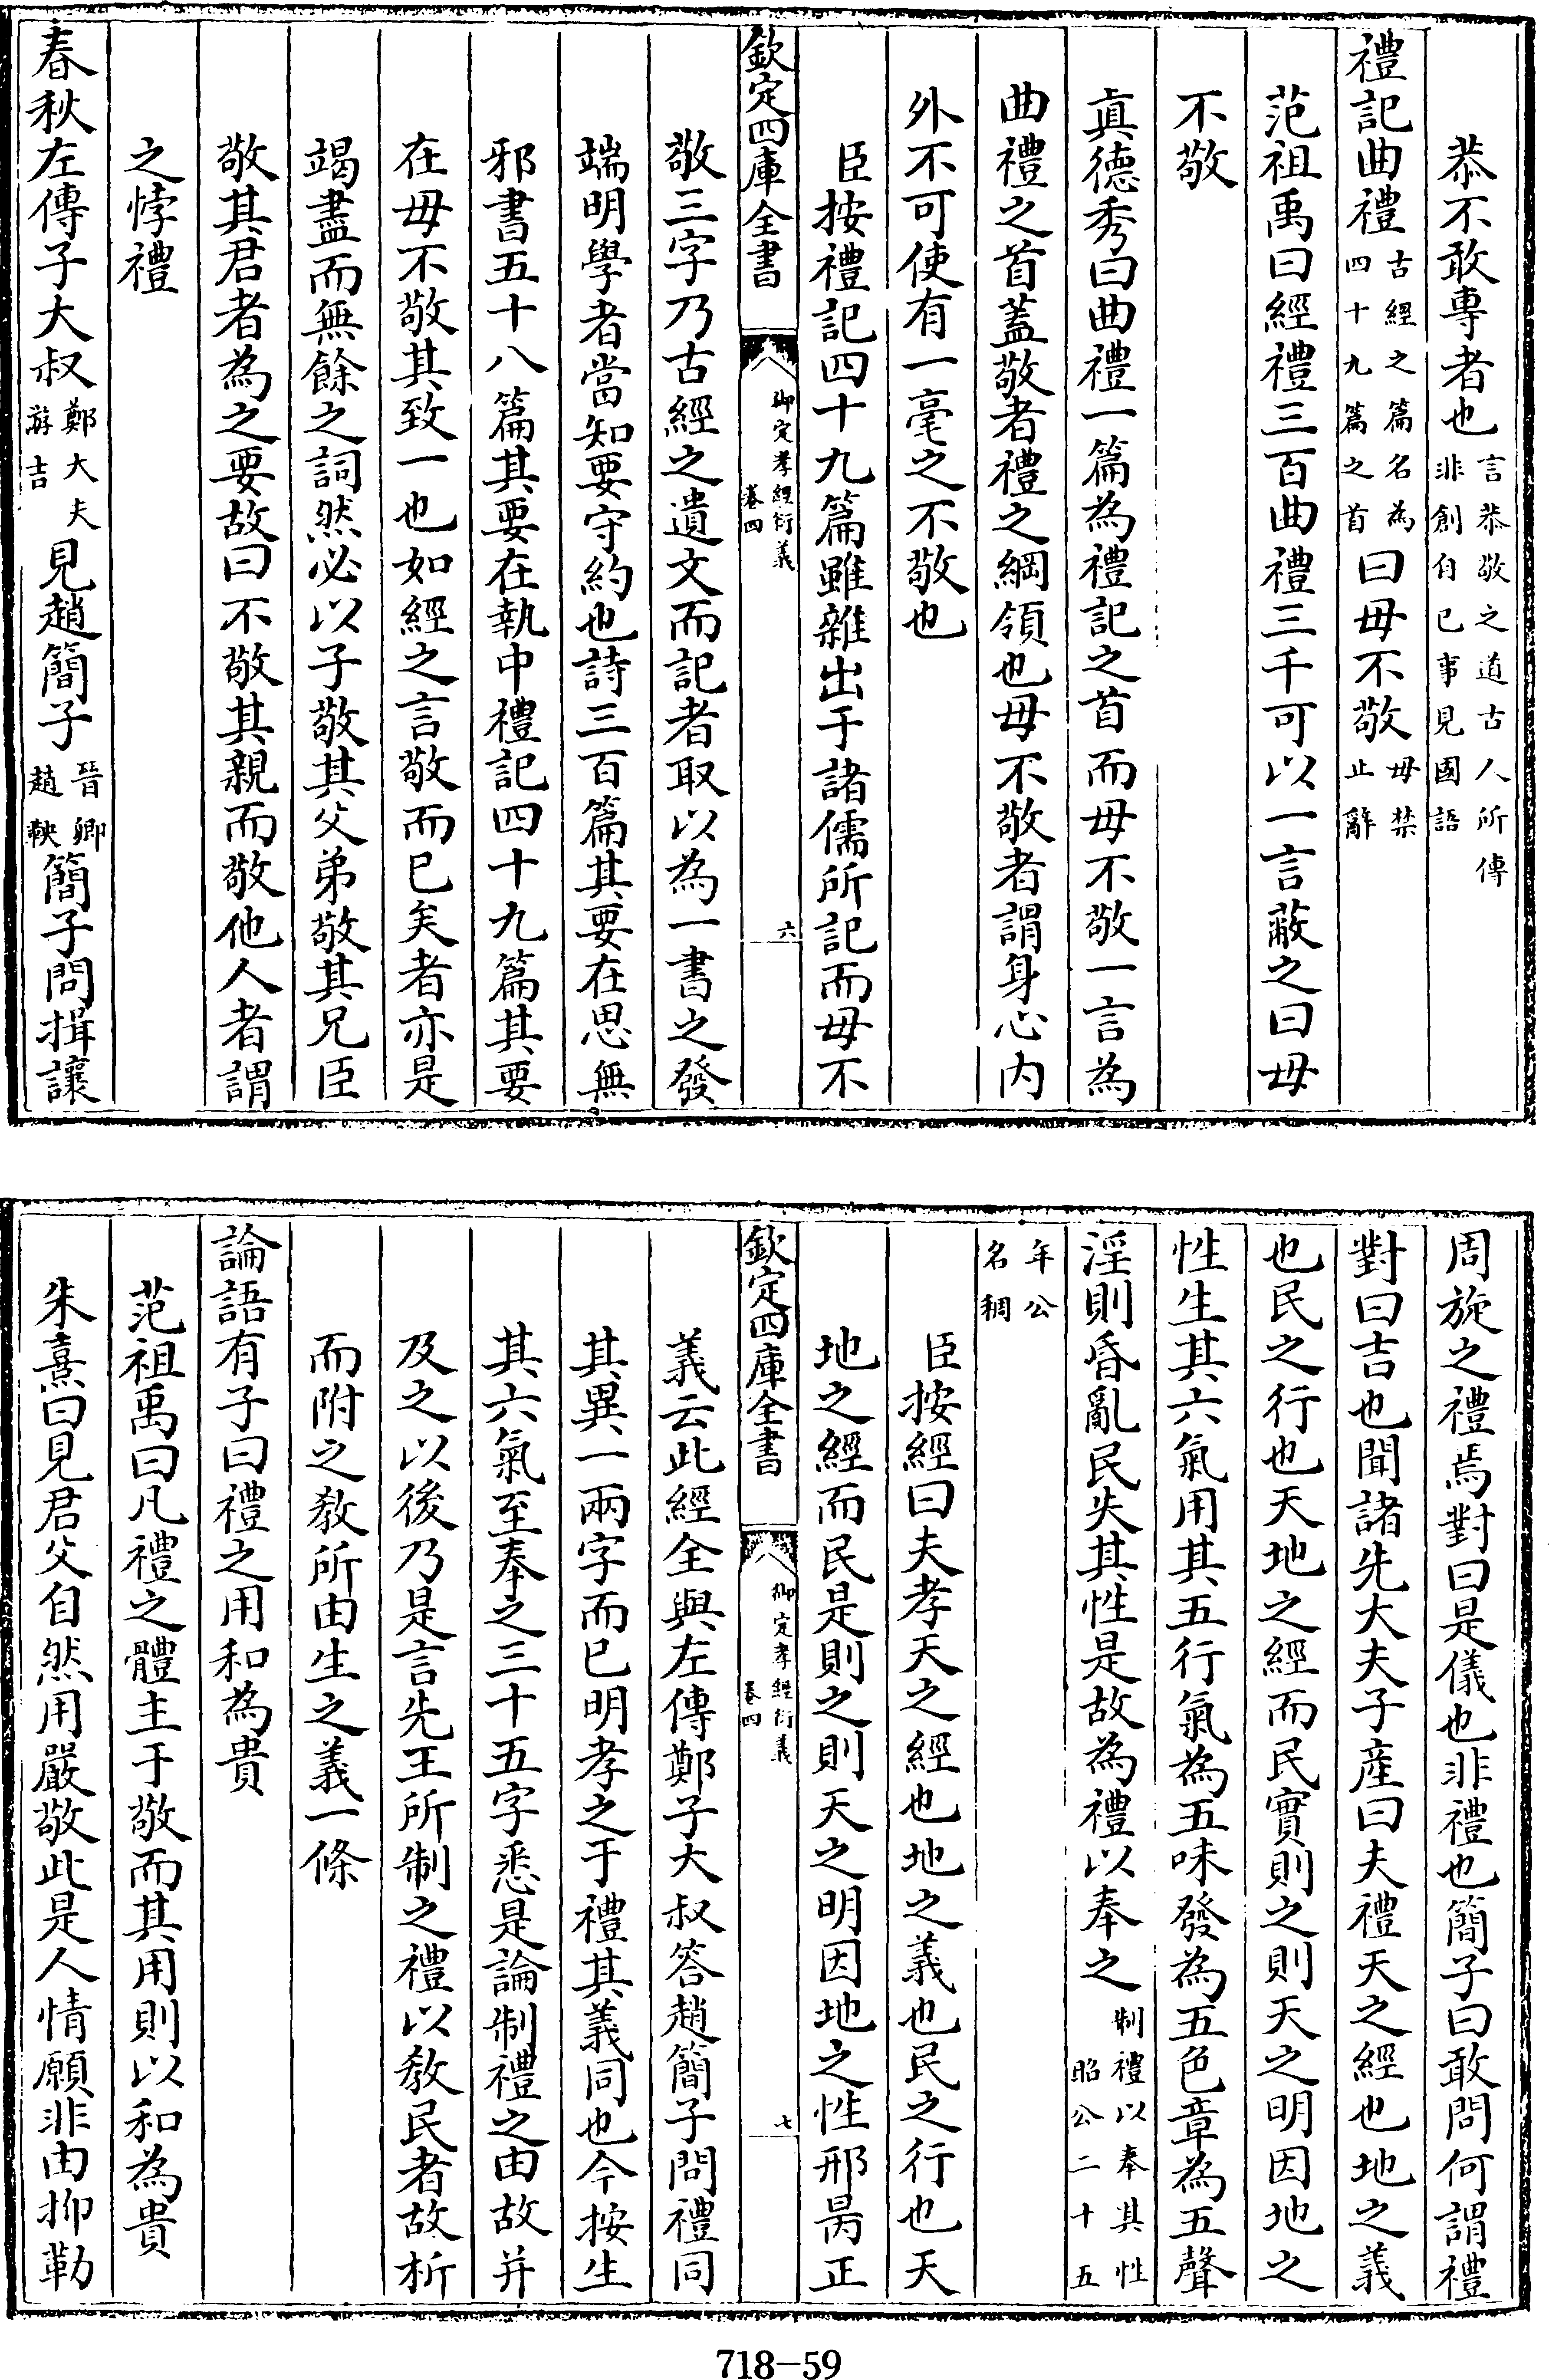 恭不敢專者也言恭敬之道古人所傳非創自已事見國語
禮記曲禮古經之篇名為四十九篇之首曰毋不敬毋禁止辭
范祖禹曰經禮三百曲禮三千可以一言蔽之曰毋
不敬
真德秀曰曲禮一篇為禮記之首而毋不敬一言為
曲禮之首蓋敬者禮之綱領也毋不敬者謂身心内
外不可使有一毫之不敬也
臣按禮記四十九篇雖雜出于諸儒所記而毋不
欽定四庫全書 御定孝經衍義 卷四 六
敬三字乃古經之遺文而記者取以為一書之發
端明學者當知要守約也詩三百篇其要在思無
邪書五十八篇其要在執中禮記四十九篇其要
在毋不敬其致一也如經之言敬而已矣者亦是
竭盡而無餘之詞然必以子敬其父弟敬其兄臣
敬其君者為之要故曰不敬其親而敬他人者謂
之悖禮
春秋左傳子大叔鄭大夫游吉見趙簡子晉卿趙鞅簡子問揖讓
周旋之禮焉對曰是儀也非禮也簡子曰敢問何謂禮
對曰吉也聞諸先大夫子産曰夫禮天之經也地之義
也民之行也天地之經而民實則之則天之明因地之
性生其六氣用其五行氣為五味發為五色章為五聲
淫則昏亂民失其性是故為禮以奉之制禮以奉其性昭公二十五
年公名稠
臣按經曰夫孝天之經也地之義也民之行也天
地之經而民是則之則天之明因地之性邢昺正
欽定四庫全書 御定孝經衍義 卷四 七
義云此經全與左傳鄭子大叔答趙簡子問禮同
其異一兩字而已明孝之于禮其義同也今按生
其六氣至奉之三十五字悉是論制禮之由故并
及之以後乃是言先王所制之禮以教民者故析
而附之教所由生之義一條
論語有子曰禮之用和為貴
范祖禹曰凡禮之體主于敬而其用則以和為貴
朱熹曰見君父自然用嚴敬此是人情願非由抑勒
718-59